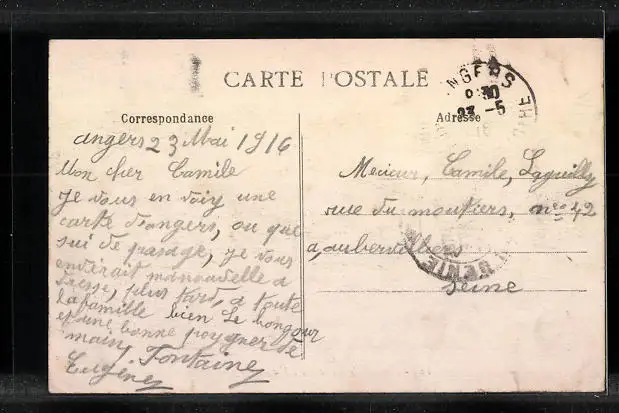 CARTE POSTALE
ANGERS
23 -5
Correspondance
Adresse
angers 23 Mai 1916
Mon cher Camile
Je vous en voiy une
carte d'angers, ou que
sui de pasage, je vous
endirait ma nouvelle a
dresse, plus tars, a toute
la famille bien Le bonjour
et une bonne poygner de
main, Fontaine
Eugène
Mesieur, Camile, Laguilly
rue du moutiers, nero 42
a, aubervilliers
Seine